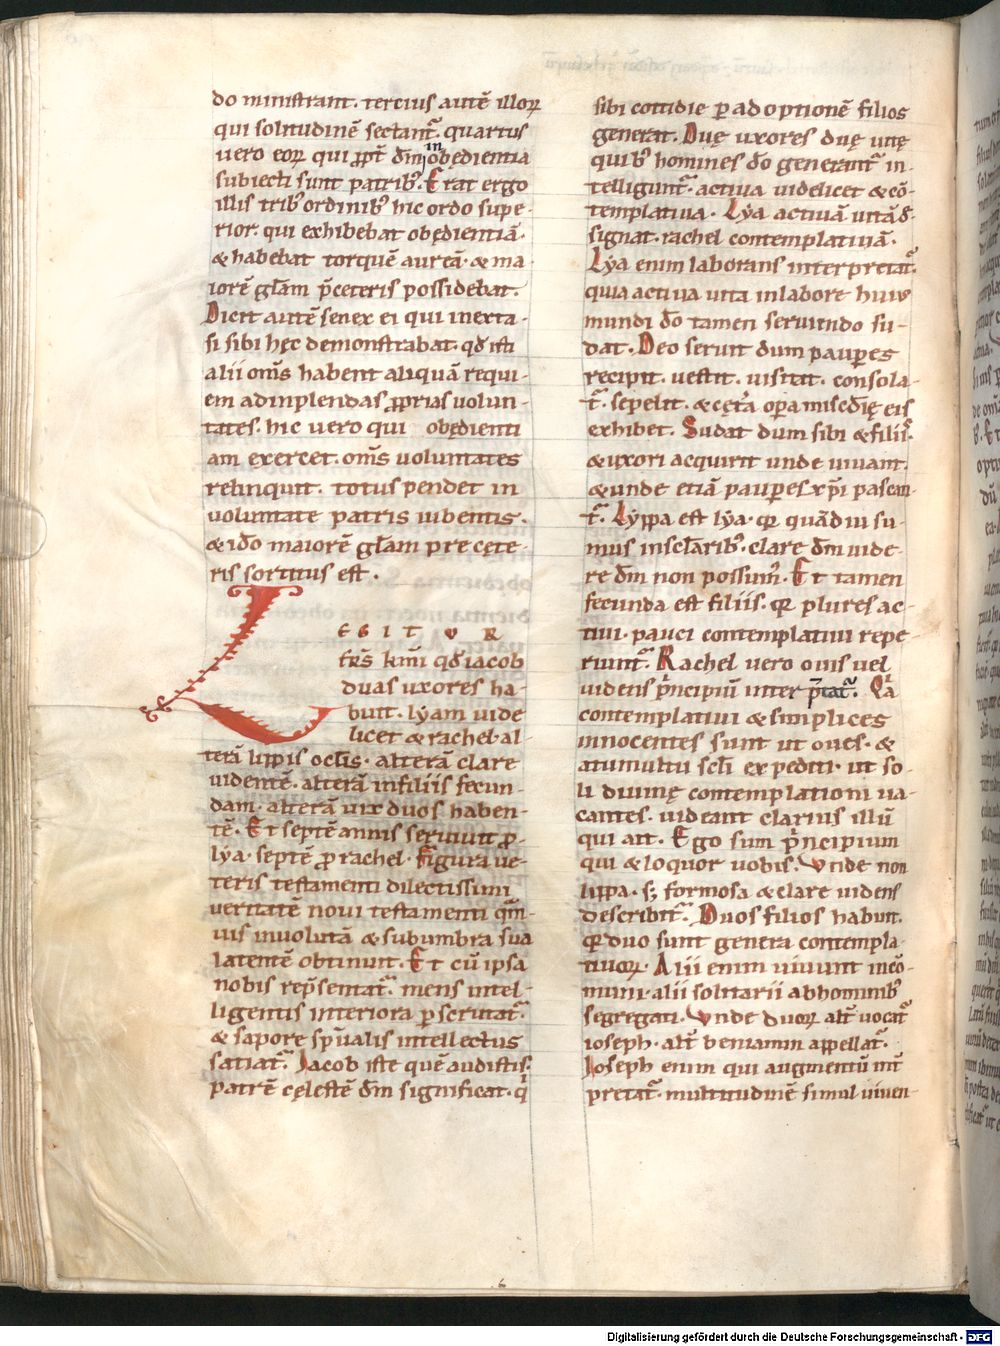 do ministrant. tercius autē illoꝝ
qui solitudinē sectant᷑. quartus
uero eoꝝ qui ꝓpt̄ dm̄ in obędientia
subiecti sunt patribꝰ. Erat ergo
illis tribꝰ ordinibꝰ hic ordo supe-
rior. qui exhibebat obędientiā.
& habebat torquē aureā. & ma-
iorē gl̄am p̄ceteris possidebat.
Dicit autē senex ei qui inexta-
si sibi hęc demonstrabat. qđ isti
alii om̄s habent aliquā requi-
em adinplendas ꝓprias uolun-
tates. hic uero qui obędienti
am exercet. om̄s uoluntates
relinquit. totus pendet in
uoluntate patris iubentis.
& ido maiorē gl̄am pre cęte-
ris sortitus est.
LEGITVR
fr̄s kmī qđ iacob
duas uxores ha-
buit. lyam uide
licet & rachel. al-
terā lippis oclis. alterā clare
uidentē. alterā infiliis fecun-
dam. alterā uix duos haben-
tē. Et septē annis seruiuit ꝓ
lya. septē ꝓ rachel. Figura ue-
teris testamenti dilectissimi
ueritatē noui testamenti qm̄-
uis inuolutā & subumbra sua
latentē obtinuit. Et cū ipsa
nobis repsentat᷑. mens intel-
ligentis interiora ꝑscrutat᷑.
& sapore sp̄ualis intellectus
satiat᷑. Iacob iste quē audistis.
patrē cęlestē dm̄ significat. qͥ
sibi cottidie ꝑ adoptionē filios
generat. Duę uxores duę uitę
quibꝰ homines do generant᷑ in-
telligunt᷑. actiua uidelicet & cō-
templatiua. Lya actiuā uitā de-
signat. rachel contemplatiuā.
Lya enim laborans interpretat᷑.
quia actiua uita inlabore huiꝰ
mundi do tamen seruiendo su-
dat. Deo seruit dum pauperes
recipit. uestit. uisitat. consola-
t᷑. sepelit. & cęt̄a oꝑa misc̄dię eis
exhibet. Sudat dum sibi & filiis.
& uxori acquirit unde uiuant.
& unde etiā pauꝑes xp̄i pascan-
t᷑. Lyppa est lya. qꝛ quādiu su-
mus insclaribꝰ. clare dm̄ uide-
re dm̄ non possumꝰ. Et tamen
fecunda est filiis. qꝛ plures ac-
tiui. pauci contemplatiui repe
riunt᷑. Rachel uero ouis uel
uidens pͥncipiū inter p̄tat᷑. Qͥa
contemplatiui & simplices
innocentes sunt ut oues. &
atumultu scl̄i expediti. ut so-
li diuinę contemplationi ua-
cantes. uideant clarius illū
qui ait. Ego sum pͥncipium
qui & loquor uobis. Vnde non
lippa. sꝫ formosa & clare uidens
describit᷑. Duos filios habuit.
qꝛ duo sunt genera contempla-
tiuoꝝ. Alii enim uiuunt incō-
muni. alii solitarii abhominibꝰ
segregati. Vnde duoꝝ alt᷑ uocat᷑
ioseph. alt᷑ beniamin appellat᷑.
Ioseph enim qui augmentū int᷑
pretat᷑. multitudinē simul uiuen-
Digitalisierung gefördert durch die Deutsche Forschungsgemeinschaft - DFG